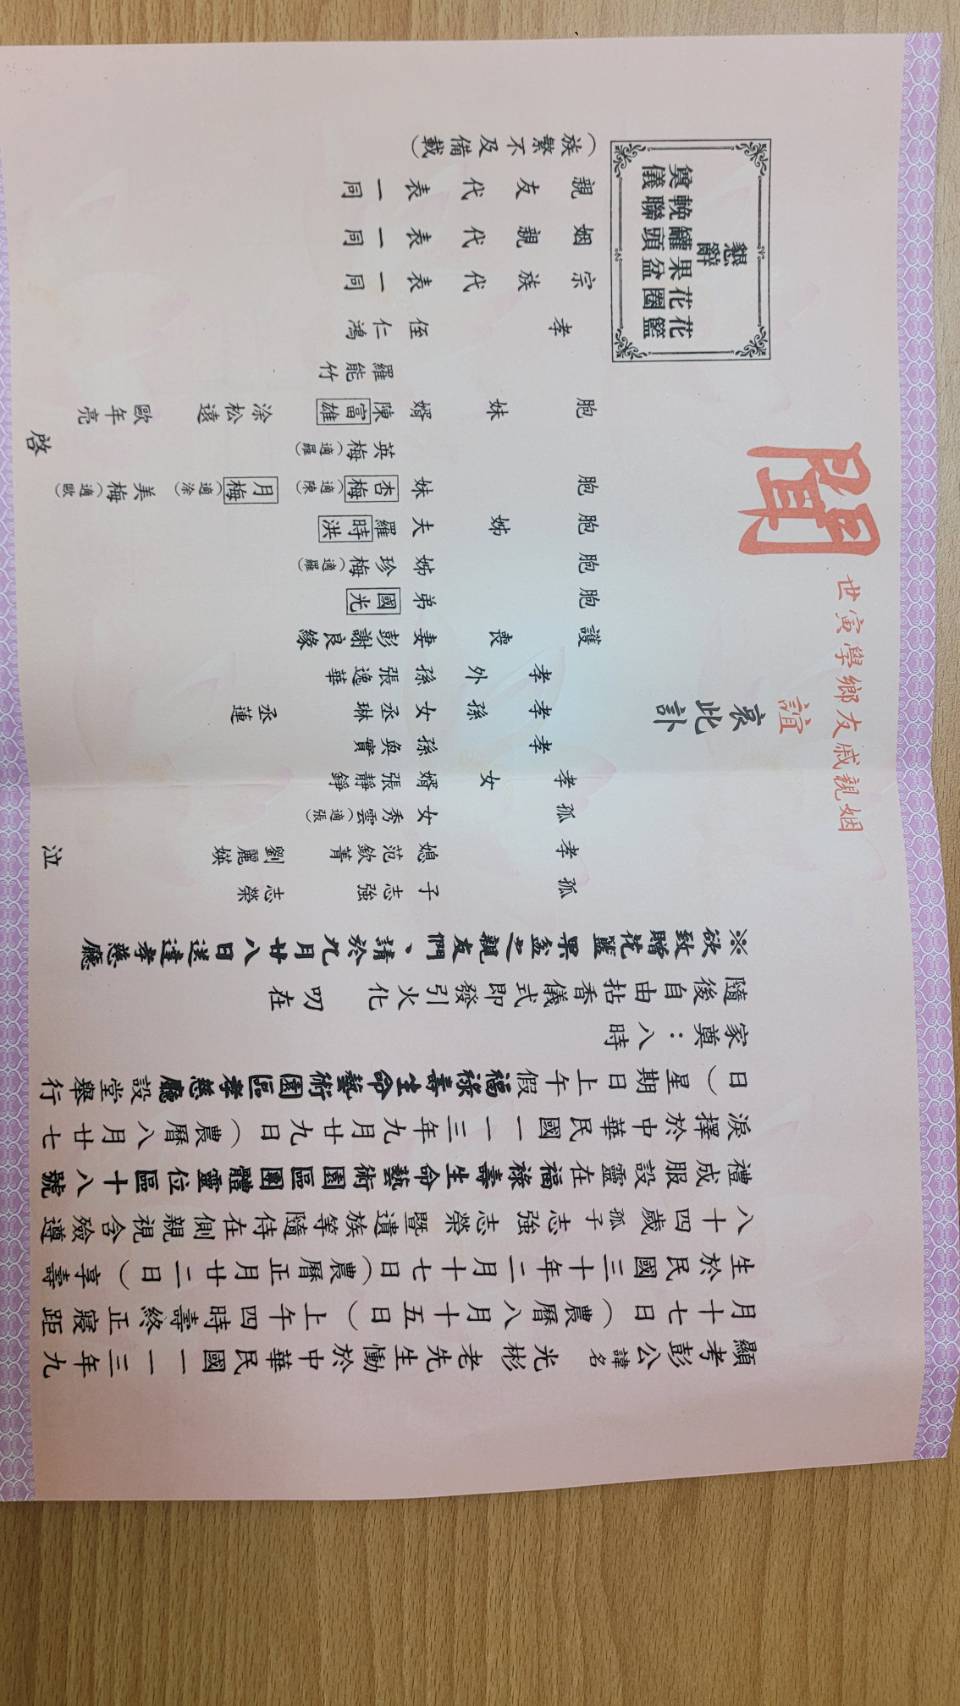 顯考彭公諱名光彬老先生慟於中華民國一一三年九
月十七日（農曆八月十五日）上午四時壽終正寢距
生於民國三十年二月十七日（農曆正月廿二日）享壽
八十四歲孤子志強志榮暨遺族等隨侍在側親視含殮遵
禮成服設靈在福祿壽生命藝術園區團體靈位區十八號
淚擇於中華民國一一三年九月廿九日（農曆八月廿七
日）星期日上午假福祿壽生命藝術園區孝慈廳設堂舉行
家奠：八時
隨後自由拈香儀式即發引火化 叨在
※欲致贈花籃果盆之親友們、請於九月廿八日送達孝慈廳
姻親戚友鄉學寅世
誼
哀此訃
聞
孤子 志強 志榮
孝媳 范欽菁 劉麗媖
孤女 秀雲（適張）
孝女婿 張靜錚
孝孫 奐實
孝孫女 丞琳 丞蓮
孝外孫 張逸華
護喪妻 彭謝良緣
胞弟 國光
胞姊 珍梅（適羅）
胞姊夫 羅時洪
胞妹 英梅（適羅） 杏梅（適陳） 月梅（適涂） 美梅（適歐）
胞妹婿 羅能竹 陳富雄 涂松遠 歐年亮
孝侄 仁鴻
宗族代表一同
姻親代表一同
親友代表一同
（族繁不及備載）
泣啓
懇辭
花籃
花圈
果盆
罐頭
輓聯
奠儀